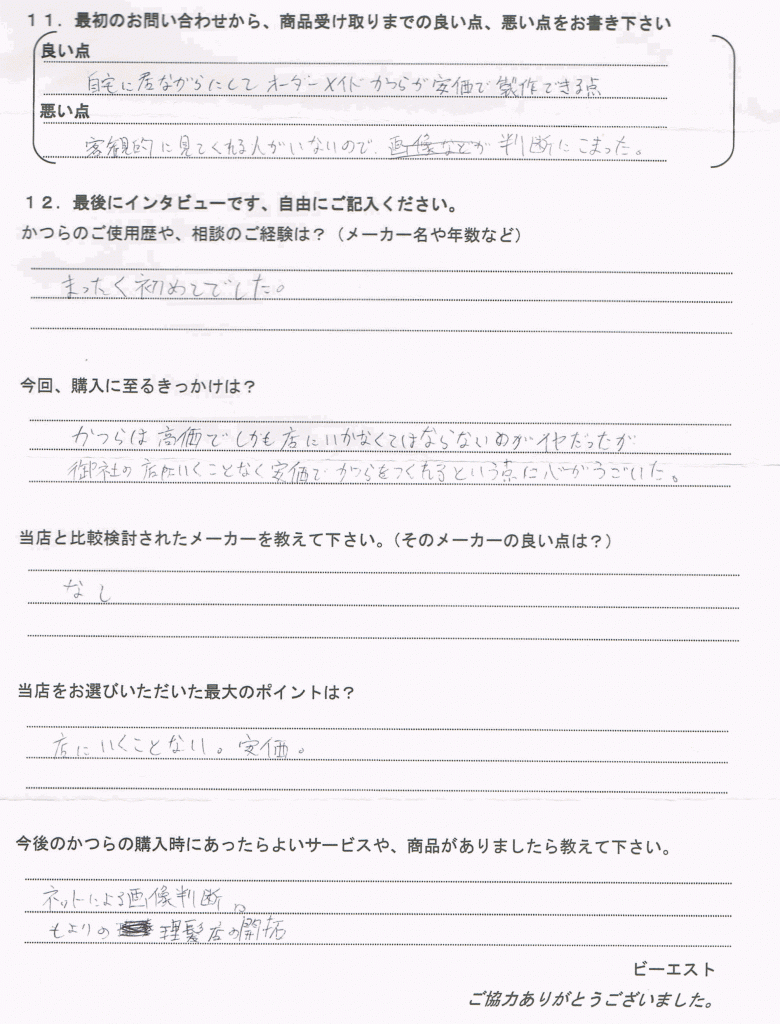 １１．最初のお問い合わせから、商品受け取りまでの良い点、悪い点をお書き下さい
良い点
自宅に居ながらにして オーダーメイドかつらが安価で製作できる点
悪い点
客観的に見てくれる人がいないので、画像などが判断にこまった。
１２．最後にインタビューです、自由にご記入ください。
かつらのご使用歴や、相談のご経験は？（メーカー名や年数など）
まったく初めてでした。
今回、購入に至るきっかけは？
かつらは高価でしかも店にいかなくてはならないのがイヤだったが
御社の店にいくことなく安価でかつらをつくれるという点に心がうごいた。
当店と比較検討されたメーカーを教えて下さい。（そのメーカーの良い点は？）
なし
当店をお選びいただいた最大のポイントは？
店にいくことない。安価。
今後のかつらの購入時にあったらよいサービスや、商品がありましたら教えて下さい。
ネットによる画像判断。
もよりの 理髪店の開拓
ビーエスト
ご協力ありがとうございました。